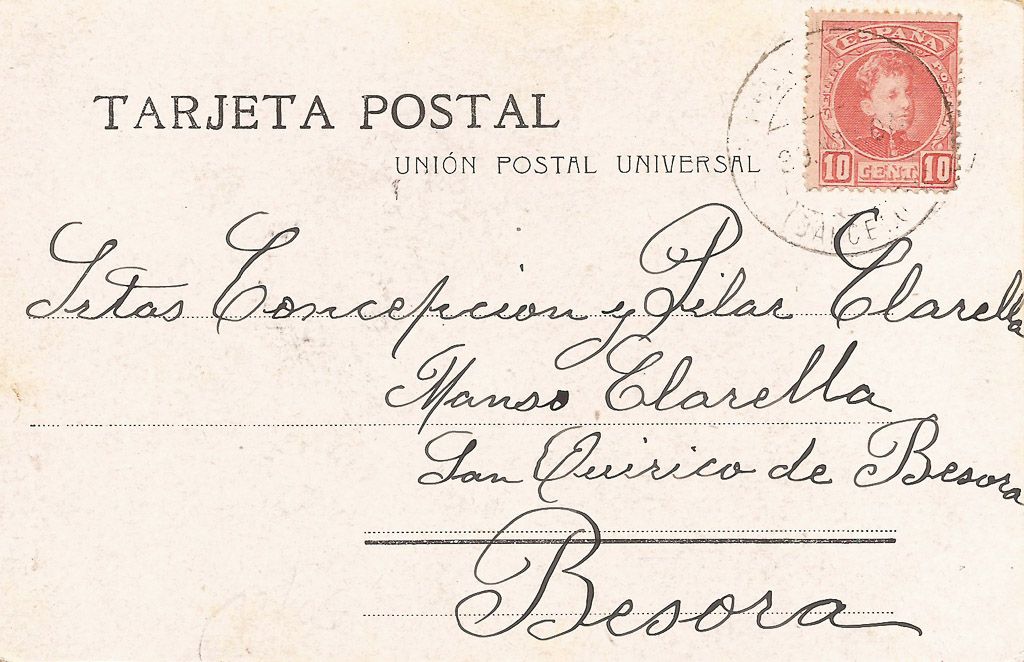 ESPAÑA
SELLO POSTAL
10 CENT. 10
TARJETA POSTAL
UNIÓN POSTAL UNIVERSAL
Srtas Concepcion y Pilar Clarella
Manso Clarella
San Quirico de Besora
Besora